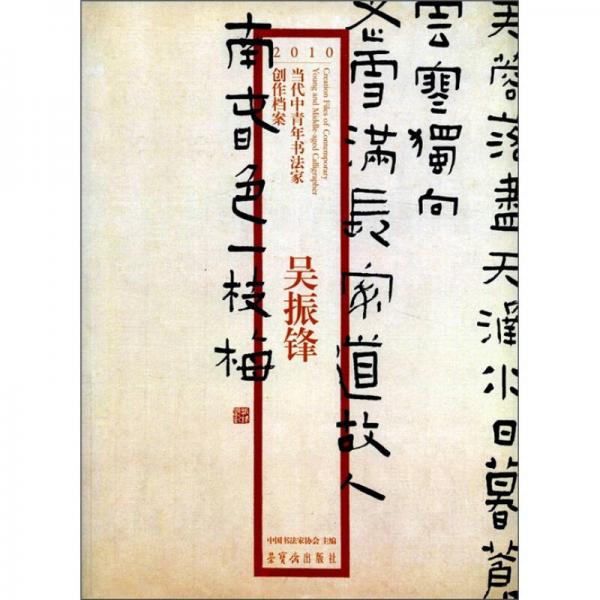 芙蓉落盡天涵水日暮蒼
雲寒獨向
雪滿長安道故人
南春色一枝梅
2010
Creation Files of Contemporary
Young and Middle-aged Calligrapher
当代中青年书法家
创作档案
吴振锋
中国书法家协会 主编
荣宝斋出版社